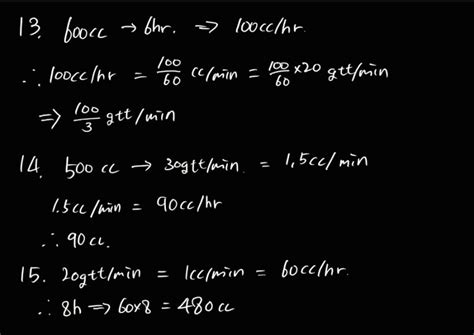 13. 600cc → 6hr. ⇒ 100cc/hr.
∴ 100cc/hr = 100/60 cc/min = 100/60 × 20 gtt/min
⇒ 100/3 gtt/min
14. 500 cc → 30gtt/min = 1,5cc/min
1.5cc/min = 90cc/hr
∴ 90cc.
15. 20gtt/min = 1cc/min = 60cc/hr.
∴ 8h ⇒ 60×8 = 480cc